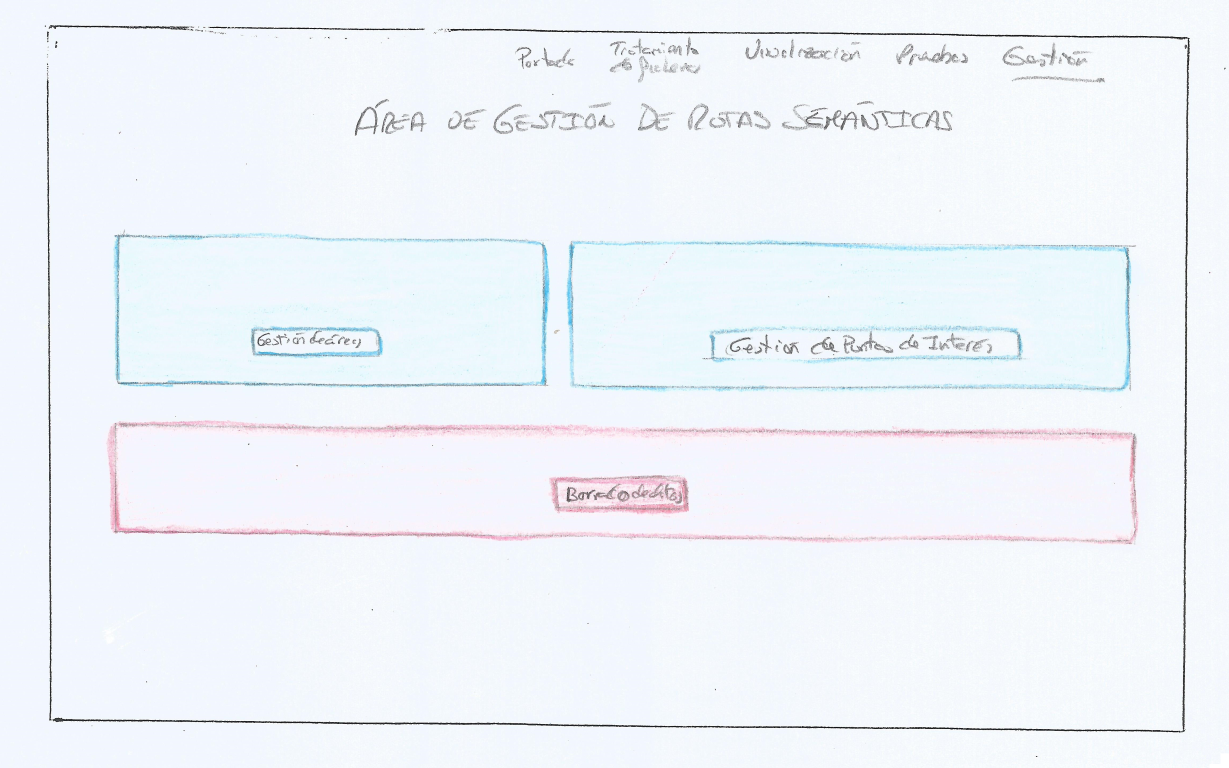 Portada
Tratamiento
de ficheros
Visualización
Pruebas
Gestión
ÁREA DE GESTIÓN DE RUTAS SEMÁNTICAS
Gestión de áreas
Gestión de Puntos de Interés
Borrado de datos